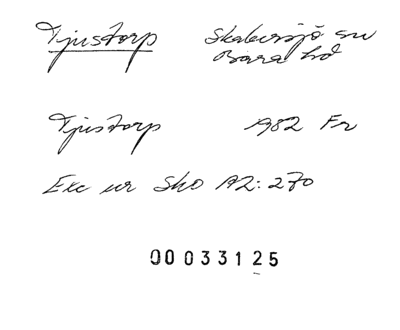 Tjustorp Skabersjö sn
Bara hd
Tjustorp 1982 Fr
Exc ur Sko A2:270
00033125